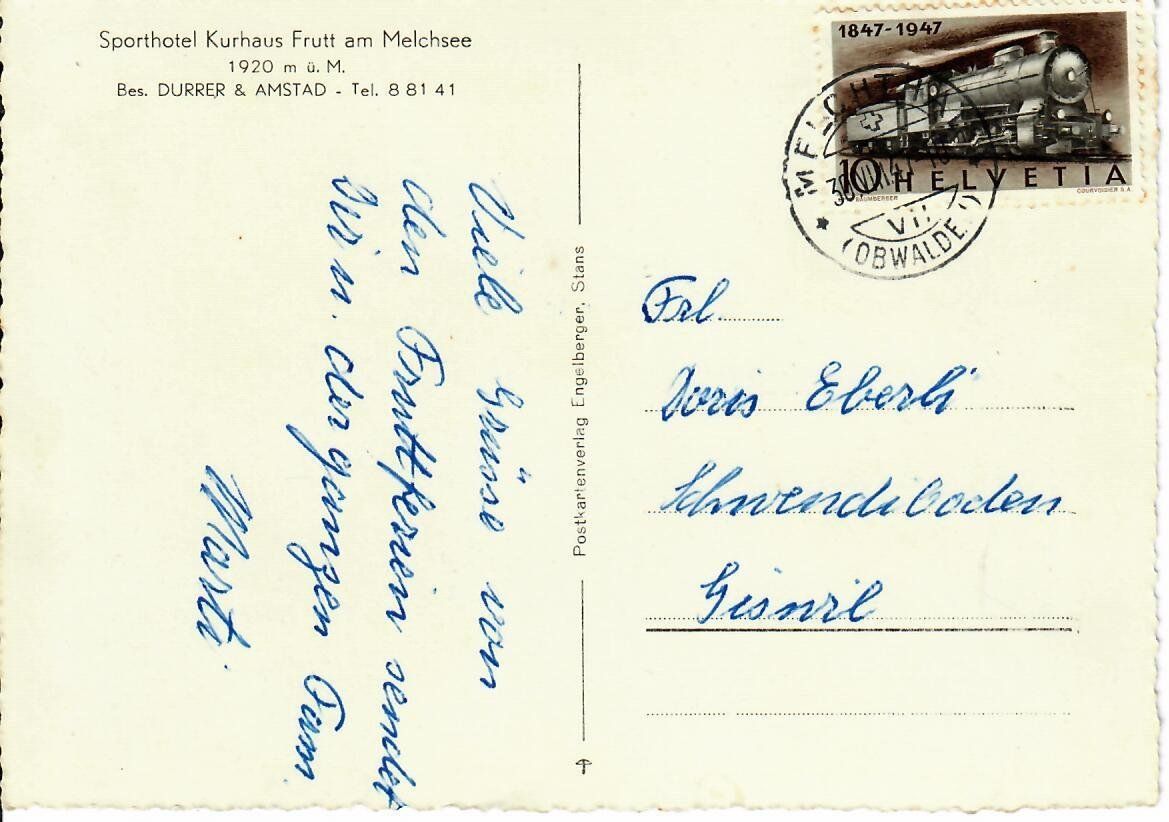 Sporthotel Kurhaus Frutt am Melchsee
1920 m ü. M.
Bes. DURRER & AMSTAD - Tel. 8 81 41
Viele Grüsse von
den Fruttferien sendet
Dir u. der ganzen Fam.
Marti
Postkartenverlag Engelberger, Stans
1847-1947
10 HELVETIA
BAUMBERGER
COURVOISIER S.A.
MELCHTAL
VII
(OBWALDEN)
Frl.
Doris Eberli
Schwendiboden
Giswil